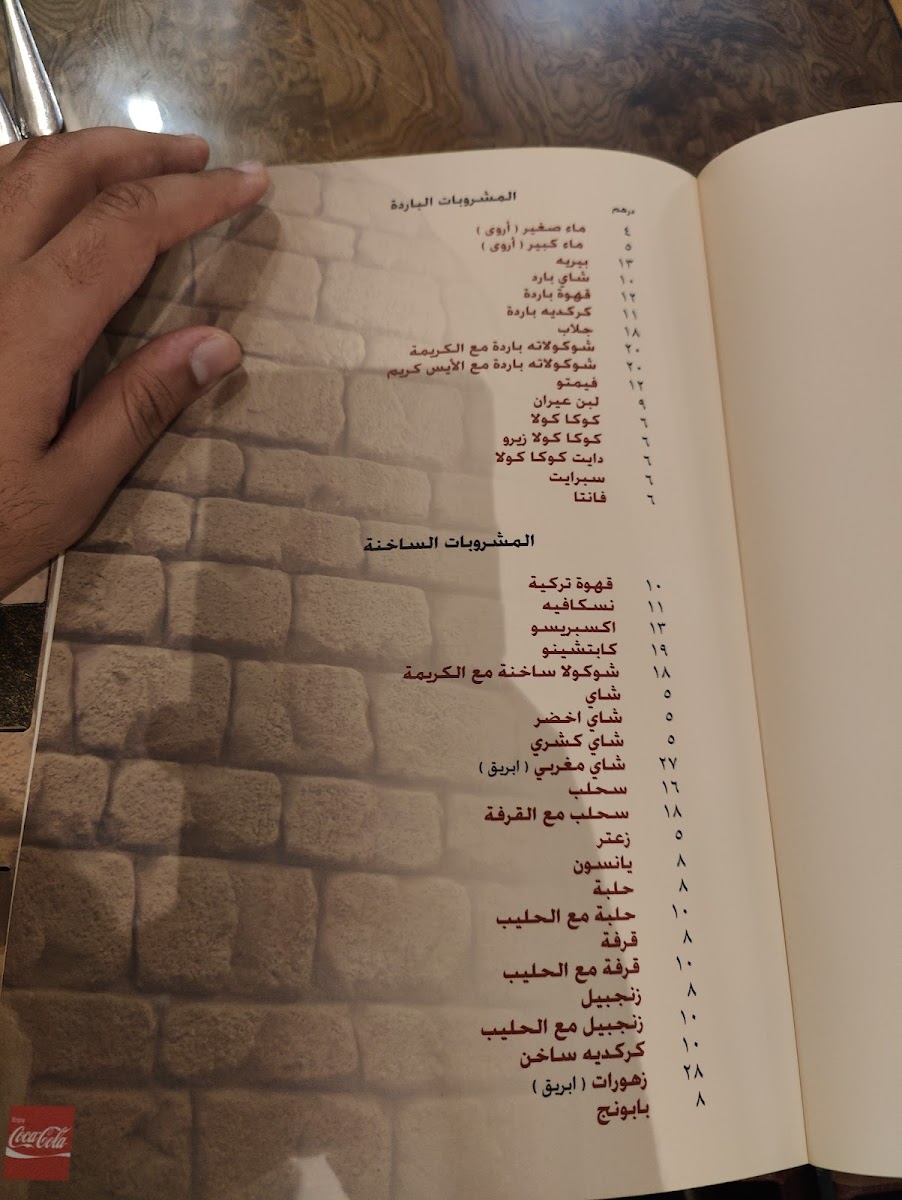 المشروبات الباردة
درهم
ماء صغير ( أروى ) ٤
ماء كبير ( أروى ) ٥
بيريه ١٣
شاي بارد ١٠
قهوة باردة ١٢
كركديه باردة ١١
جلاب ١٨
شوكولاته باردة مع الكريمة ٢٠
شوكولاته باردة مع الأيس كريم ٢٠
فيمتو ١٢
لبن عيران ٩
كوكا كولا ٦
كوكا كولا زيرو ٦
دايت كوكا كولا ٦
سبرايت ٦
فانتا ٦
المشروبات الساخنة
قهوة تركية ١٠
نسكافيه ١١
اكسبريسو ١٣
كابتشينو ١٩
شوكولا ساخنة مع الكريمة ١٨
شاي ٥
شاي اخضر ٥
شاي كشري ٥
شاي مغربي ( ابريق ) ٢٧
سحلب ١٦
سحلب مع القرفة ١٨
زعتر ٥
يانسون ٨
حلبة ٨
حلبة مع الحليب ١٠
قرفة ٨
قرفة مع الحليب ١٠
زنجبيل ٨
زنجبيل مع الحليب ١٠
كركديه ساخن ١٠
زهورات ( ابريق ) ٢٨
بابونج ٨
Enjoy
Coca-Cola